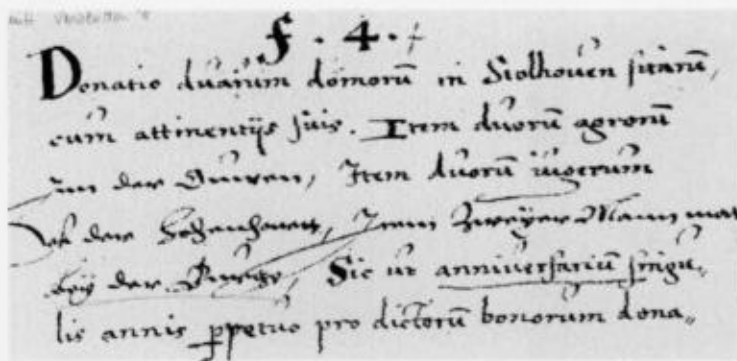 f. 4.
Donatio duarum domorū in Siolhouen sitarū,
cum attinentijs suis. Item duorū agrorū
Inn der Auwen, Item duorū iugerum
der Item Zweyer Mann mat
bey der Sic ut anniuersariū singu-
lis annis ppetuo pro dictorū bonorum dona-